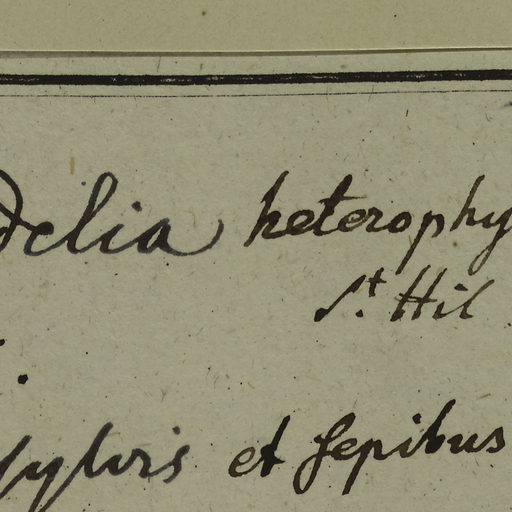 delia heterophy
St. Hil
sylvis et sepibus